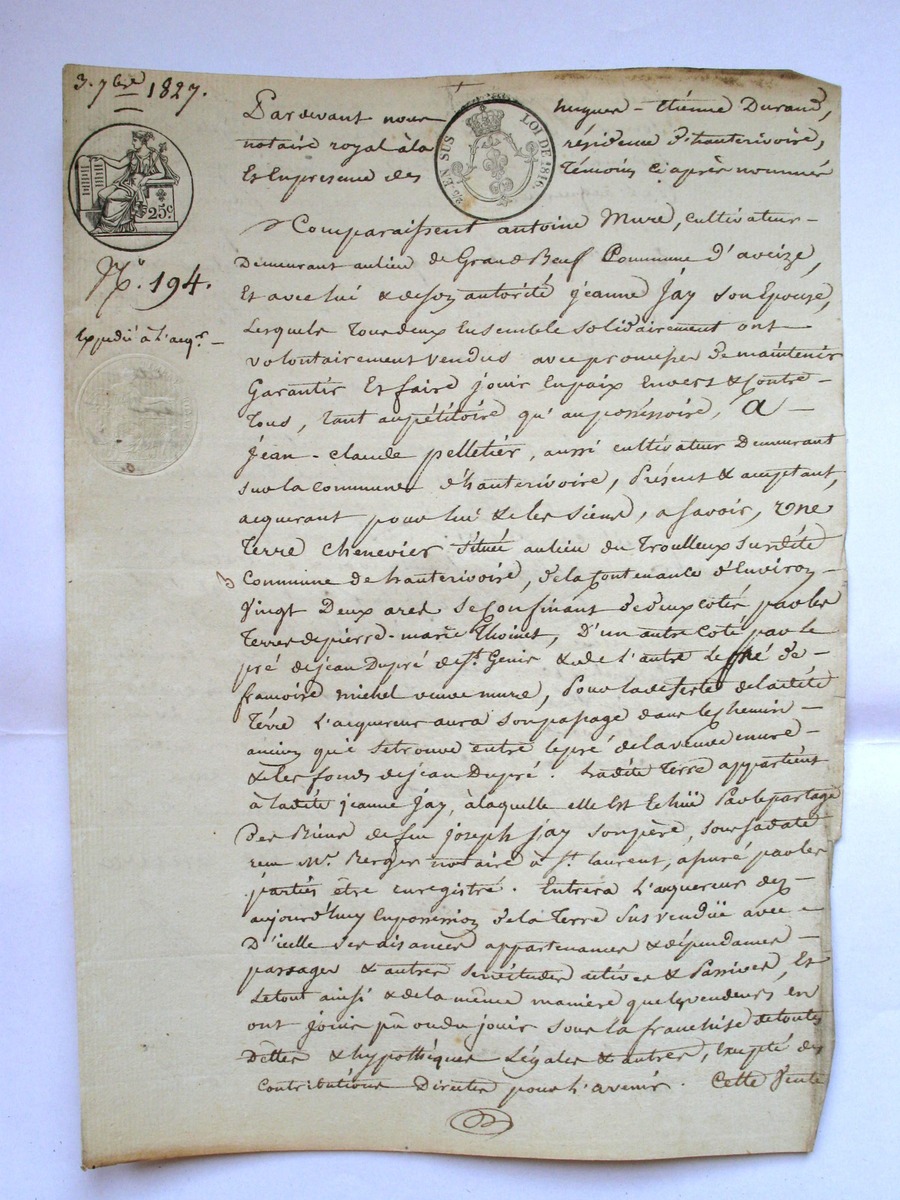 3. 7bre 1827.
Pardevant nous hugues-étienne Durand,
notaire royal à la résidence d'hauterivoire,
Et En presence des Témoins ci après nommés
2/10 EN SUS LOI DE 1816.
25c
N.° 194.
Expedié à l'acqr.
Comparaissent antoine Mure, cultivateur
Demeurant au lieu de Grand Beuf Commune d'aveize,
Et avec lui & de son autorité jeanne Jay son Epouse,
Lesquels Tous deux Ensemble solidairement ont
volontairement vendus avec promesses de maintenir
Garantir Et faire jouir En paix Envers & Contre
Tous, tant au pétitoire qu'au possessoire, A
jean-claude pelletier, aussi cultivateur Demeurant
sur la commune d'hauterivoire, Présent & acceptant,
acquerant pour lui & les siens, a savoir, Une
Terre chenevier située au lieu du Troulleux sur dite
Commune de hauterivoire, de la Contenance d'Environ
Vingt Deux ares se Confinant de deux cotés par les
Terres de pierre-marie Thoinet, D'un autre Coté par le
pré de jean Dupré de St. Genis & de l'autre le pré de
francoise michel veuve mure, Pour la deserte de la dite
Térre L'acquereur aura son passage dans le Chemin
ancien qui se trouve entre le pré de la veuve mure
& les fonds de jean Dupré. Ladite Terre appartient
à ladite jeanne Jay, à laquelle elle Est Echüe Par le partage
Des Biens de feu joseph jay son père, sous sa date
recu Mr. Berger notaire à St. laurent, assuré par les
partis être enregistré. Entrera L'acquereur dez
aujourd'huy En possession de la Terre sus vendüe avec
D'icelle ses aisances appartenances & dépendances
passages & autres servitudes actives & Passives, Et
Le tout ainsi & de la même manière que les vendeurs en
ont jouis pû ou du jouir sous la franchise de toutes
Dêttes & hypothèques Légales & autres, Excepté des
Contributions Directes pour l'avenir. Cette Vente